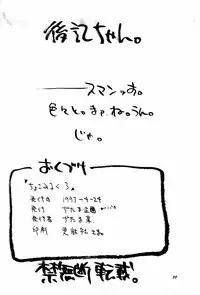 後記ちゃん。
――スマンっす。
色々と。まァ、ね。うん。
じゃ。
おくづけ
ちょこみるく 3。
発行日 1997-4-29
発行 かたま企画
発行者 かたま
印刷
禁無断転載。